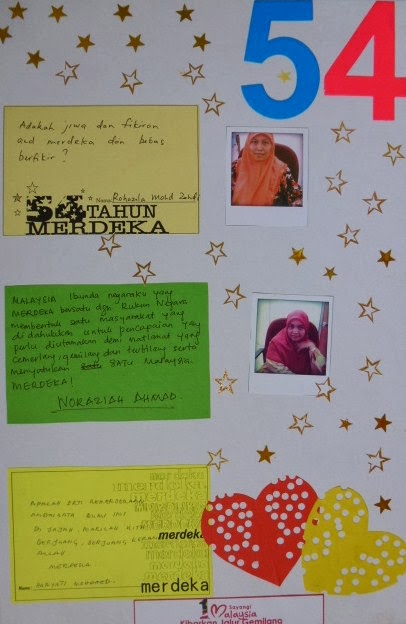 54
Adakah jiwa dan fikiran
and merdeka dan bebas
berfikir?
Nama: Rohazila Mohd Zahdi
54 TAHUN
MERDEKA
MALAYSIA Ibunda negaraku yang
MERDEKA bersatu dgn Rukun Negara
membentuk satu masyarakat yang
didahulukan untuk pencapaian yang
perlu diutamakan demi matlamat yang
Cemerlang, gemilang dan terbilang serta
menyatukan satu SATU Malaysia.
MERDEKA!
NORAZIAH AHMAD.
merdeka
APALAH ERTI KEMERDEKAAN
ANDAIKATA
DI JAJAH, MARILAH KITA
BERJUANG, BERJUANG KERANA
ALLAH
merdeka
MERDEKA
Nama:
merdeka
1 Sayangi
Malaysia
Kibarkan Jalur Gemilang